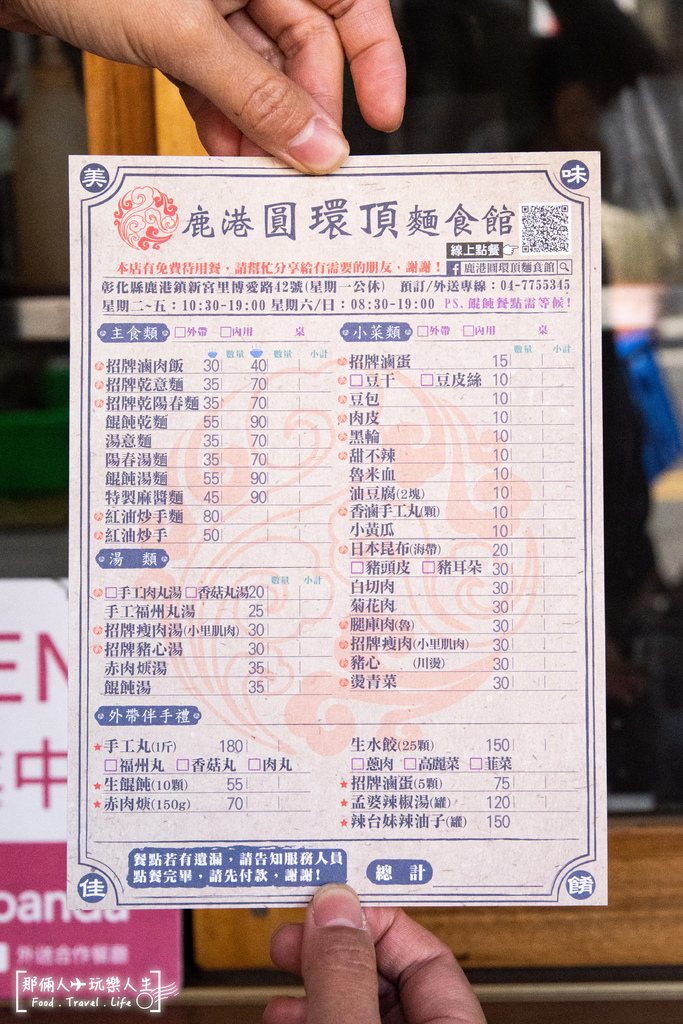 美 味
鹿港圓環頂麵食館
線上點餐
本店有免費待用餐，請幫忙分享給有需要的朋友，謝謝！
f 鹿港圓環頂麵食館
彰化縣鹿港鎮新宮里博愛路42號(星期一公休) 預訂/外送專線：04-7755345
星期二~五：10:30-19:00 星期六/日：08:30-19:00 PS.餛飩餐點需等候！
主食類 □外帶 □內用 桌
數量 數量 小計
招牌滷肉飯 30 40
招牌乾意麵 35 70
招牌乾陽春麵 35 70
餛飩乾麵 55 90
湯意麵 35 70
陽春湯麵 35 70
餛飩湯麵 55 90
特製麻醬麵 45 90
紅油炒手麵 80
紅油炒手 50
湯 類
數量 小計
□手工肉丸湯 □香菇丸湯 20
手工福州丸湯 25
招牌瘦肉湯(小里肌肉) 30
招牌豬心湯 30
赤肉焿湯 35
餛飩湯 35
小菜類 □外帶 □內用 桌
數量 小計
招牌滷蛋 15
□豆干 □豆皮絲 10
豆包 10
肉皮 10
黑輪 10
甜不辣 10
魯米血 10
油豆腐(2塊) 10
香滷手工丸(顆) 10
小黃瓜 10
日本昆布(海帶) 20
□豬頭皮 □豬耳朵 30
白切肉 30
菊花肉 30
腿庫肉(魯) 30
招牌瘦肉(小里肌肉) 30
豬心 (川燙) 30
燙青菜 30
外帶伴手禮
★手工丸(1斤) 180
□福州丸 □香菇丸 □肉丸
★生餛飩(10顆) 55
★赤肉焿(150g) 70
生水餃(25顆) 150
□蔥肉 □高麗菜 □韮菜
★招牌滷蛋(5顆) 75
★孟婆辣椒湯(罐) 120
★辣台妹辣油子(罐) 150
餐點若有遺漏，請告知服務人員
點餐完畢，請先付款，謝謝！
總 計
佳 餚
EN
中
panda
外送合作餐廳
那倆人✈玩樂人生
Food . Travel . Life